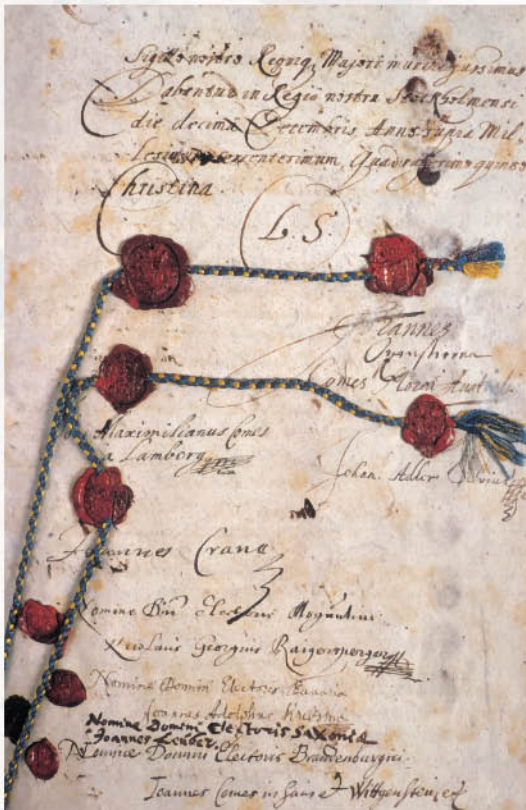 Sigillo nostro Regniq, Majori
Dabantur in Regiâ nostrâ Stockholmensi
die decima Decembris, Anno supra Mil-
Lesimum sexcentesimum, Quadragesimo quinto
Christina
L. S.
Johannes
Oxenstierna
Comes Morea Austral
Maximilianus Comes
a Lamberg
Johan. Adler Salvius
Joannes Crane
Nomine Dni Electoris Moguntini
Nicolaus Georgius Raigersperger
Nomine Domini Electoris Bavariæ
Joannes Adolphus Krebsme
Nomine Domini Electoris Saxoniæ
Joannes Leuber.
Nomine Domini Electoris Brandenburgici
Joannes Comes in Sain et Wittgenstein